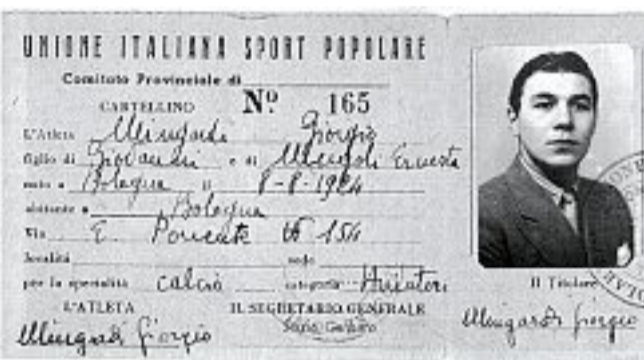 UNIONE ITALIANA SPORT POPOLARE
Comitato Provinciale di
CARTELLINO Nº 165
L'Atleta Mingardi Giorgio
figlio di Giovanni e di Mengoli Ernesta
nato a Bologna il 8-8-1924
abitante a Bologna
Via E. Ponente 154
località sede
per la specialità calcio categoria
L'ATLETA IL SEGRETARIO GENERALE
Mingardi Giorgio
Il Titolare
Mingardi Giorgio